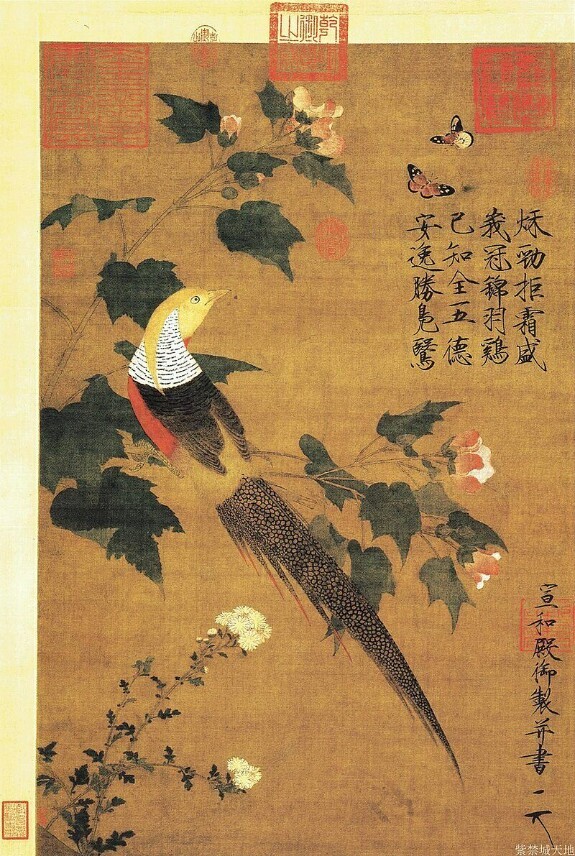 秋勁拒霜盛
峩冠錦羽鷄
已知全五德
安逸勝鳧鷖
宣和殿御製并書
天下一人
紫禁城天地